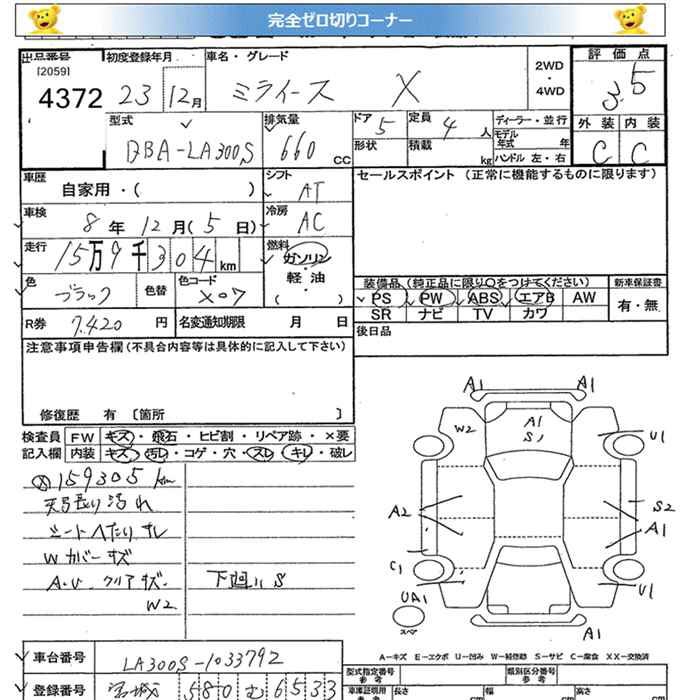 完全ゼロ切りコーナー
出品番号 初度登録年月 車名・グレード 2WD ・ 4WD 評価点
[2059]
4372 23 12月 ミライース X 3.5
型式 排気量 ドア 5 定員 4 人 ディーラー・並行 外装 内装
モデル年式 年
DBA-LA300S 660 cc 形状 積載 kg ハンドル 左・右 C C
車歴 シフト セールスポイント (正常に機能するものに限ります)
自家用・( ) AT
車検 冷房
8年 12月(5日) AC
走行 燃料
15万9千304km ガソリン・軽油
( )
色 色替 色コード 装備品 (純正品に限り○をつけてください) 新車保証書
ブラック X07 PS PW ABS エアB AW 有・無
SR ナビ TV カワ
R券 7,420 円 名変通知期限 月 日 後日品
注意事項申告欄 (不具合内容等は具体的に記入して下さい)
修復歴 有 〔箇所 〕
検査員 FW キズ・飛石・ヒビ割・リペア跡・×要
記入欄 内装 キズ・汚レ・コゲ・穴・スレ・キレ・破レ
159305km
天張り汚れ
シートへたりスレ
Wカバーキズ
A・U クリアキズ 下廻りS
W2
A1 A1
W2 A1 U1
S1
A2 S2
A1
C1 U1
UA1
スペア A1
A-キズ E-エクボ U-凹み W-補修跡 S-サビ C-腐食 XX-交換済
車台番号 LA300S-1033792
型式指定番号 類別区分番号
参考 参考
登録番号 宮城 580 む 6533
車庫証明用 長さ 幅 高さ